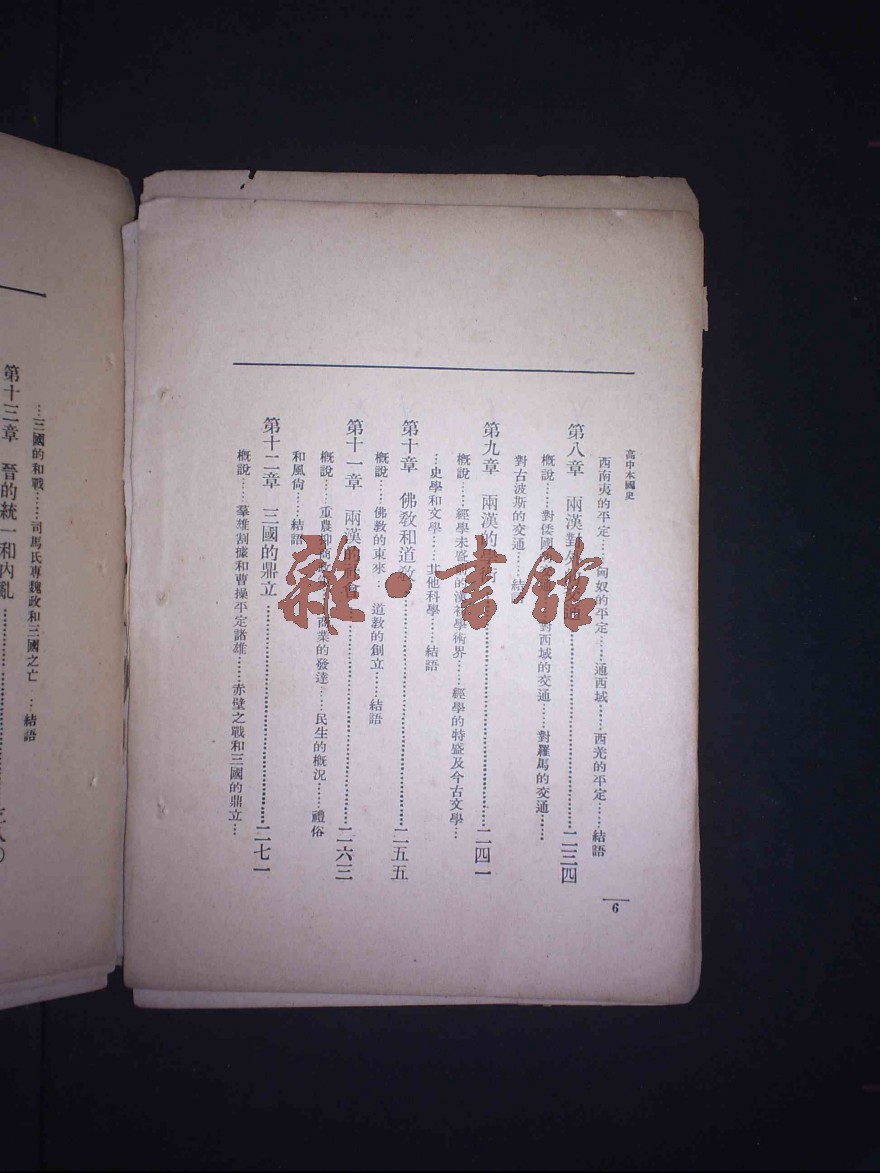 高中本國史
6
西南夷的平定……匈奴的平定……通西域……西羌的平定……結語
第八章　兩漢對外交通……二三四
概說……對倭國……對西域的交通……對羅馬的交通……
對古波斯的交通……結語
第九章　兩漢的學術……二四一
概說……經學未盛前的漢初學術界……經學的特盛及今古文學……
…史學和文學……其他科學……結語
第十章　佛教和道教……二五五
概說……佛教的東來…道教的創立……結語
第十一章　兩漢的社會……二六三
概說……重農抑商政……商業的發達……民生的概況……禮俗
和風尙……結語
第十二章　三國的鼎立……二七一
概說……羣雄割據和曹操平定諸雄……赤壁之戰和三國的鼎立…
…三國的和戰……司馬氏專魏政和三國之亡…結語
第十三章　晉的統一和內亂……二八〇
雜·書館